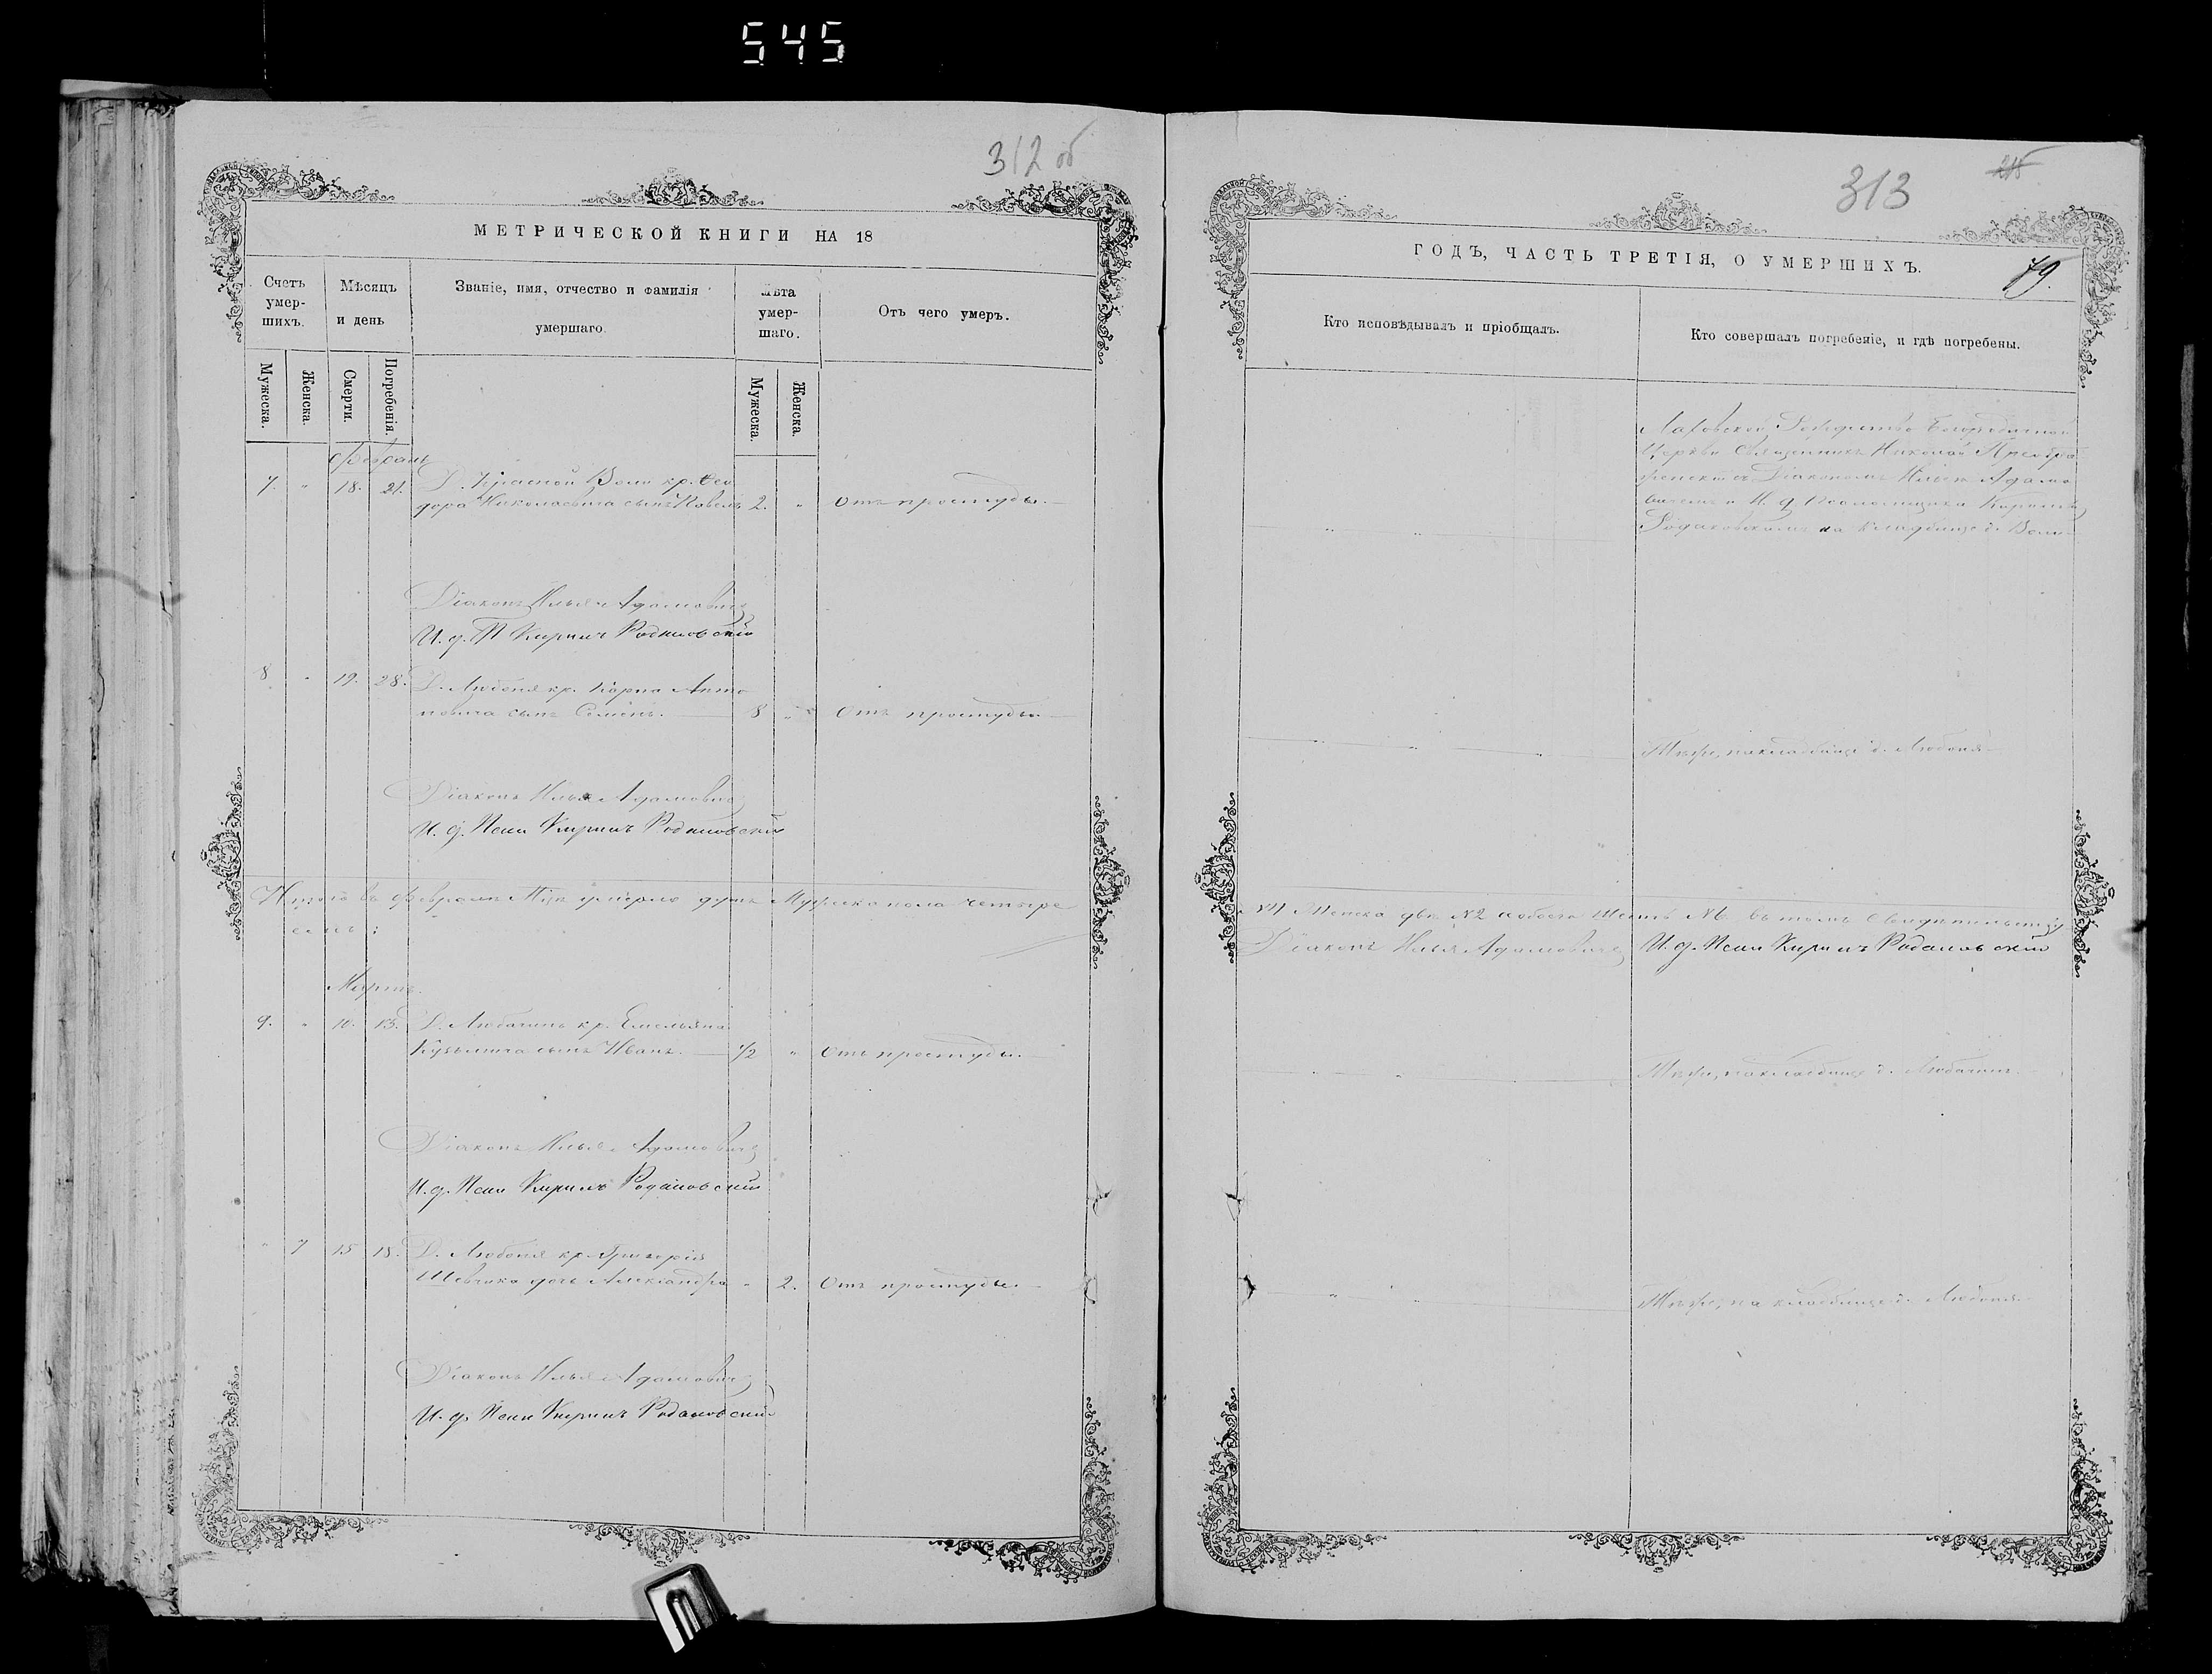 545
312 об
МЕТРИЧЕСКОЙ КНИГИ НА 18
Счетъ умер- шихъ.
Мѣсяцъ и день
Званіе, имя, отчество и фамилія умершаго.
Лѣта умер- шаго.
Отъ чего умеръ.
Мужеска.
Женска.
Смерти.
Погребенія.
Мужеска.
Женска.
7. " 18. 21. Д. Красной Воли кр. Ѳео
дора Николаевича сынъ Павелъ 2. " Отъ простуды.
Діаконъ Илья Адамовичъ
И. д. П Кирилъ Родаковскій
8 " 19. 28. Д. Любеня кр. Карпа Анто
новича сынъ Семенъ. 8 " Отъ простуды.
Діаконъ Илья Адамовичъ
И. д. Псал Кирилъ Родаковскій
Итого въ Февралѣ Мцѣ умерло душъ Мужеска пола четыре
Мартъ.
9. " 10. 13. Д. Любачинъ кр. Емельяна
Кузьмича сынъ Иванъ. 1/2 " Отъ простуды.
Діаконъ Илья Адамовичъ
И. д. Псал Кирилъ Родаковскій
" 7 15 18. Д. Любеня кр. Григорія
Шевчика дочь Александра " 2. Отъ простуды.
Діаконъ Илья Адамовичъ
И. д. Псал Кирилъ Родаковскій
313
ГОДЪ, ЧАСТЬ ТРЕТІЯ, О УМЕРШИХЪ.
79.
Кто исповѣдывалъ и пріобщалъ.
Кто совершалъ погребеніе, и гдѣ погребены.
Рождество Богородичной
Церкви Священникъ Николай Преобра
женскій съ Діакономъ Ильею Адамо
вичемъ и И. д. Псаломщика Кириломъ
Родаковскимъ на кладбище д. Воли
Тѣже, на кладбище д. Любеня
№4 Женска двѣ №2 обоего шесть №6 въ томъ свидѣтельствую
Діаконъ Илья Адамовичъ И. д. Псал Кирилъ Родаковскій
Тѣже, на кладбище д. Любачинъ.
Тѣже, на кладбище д. Любеня.